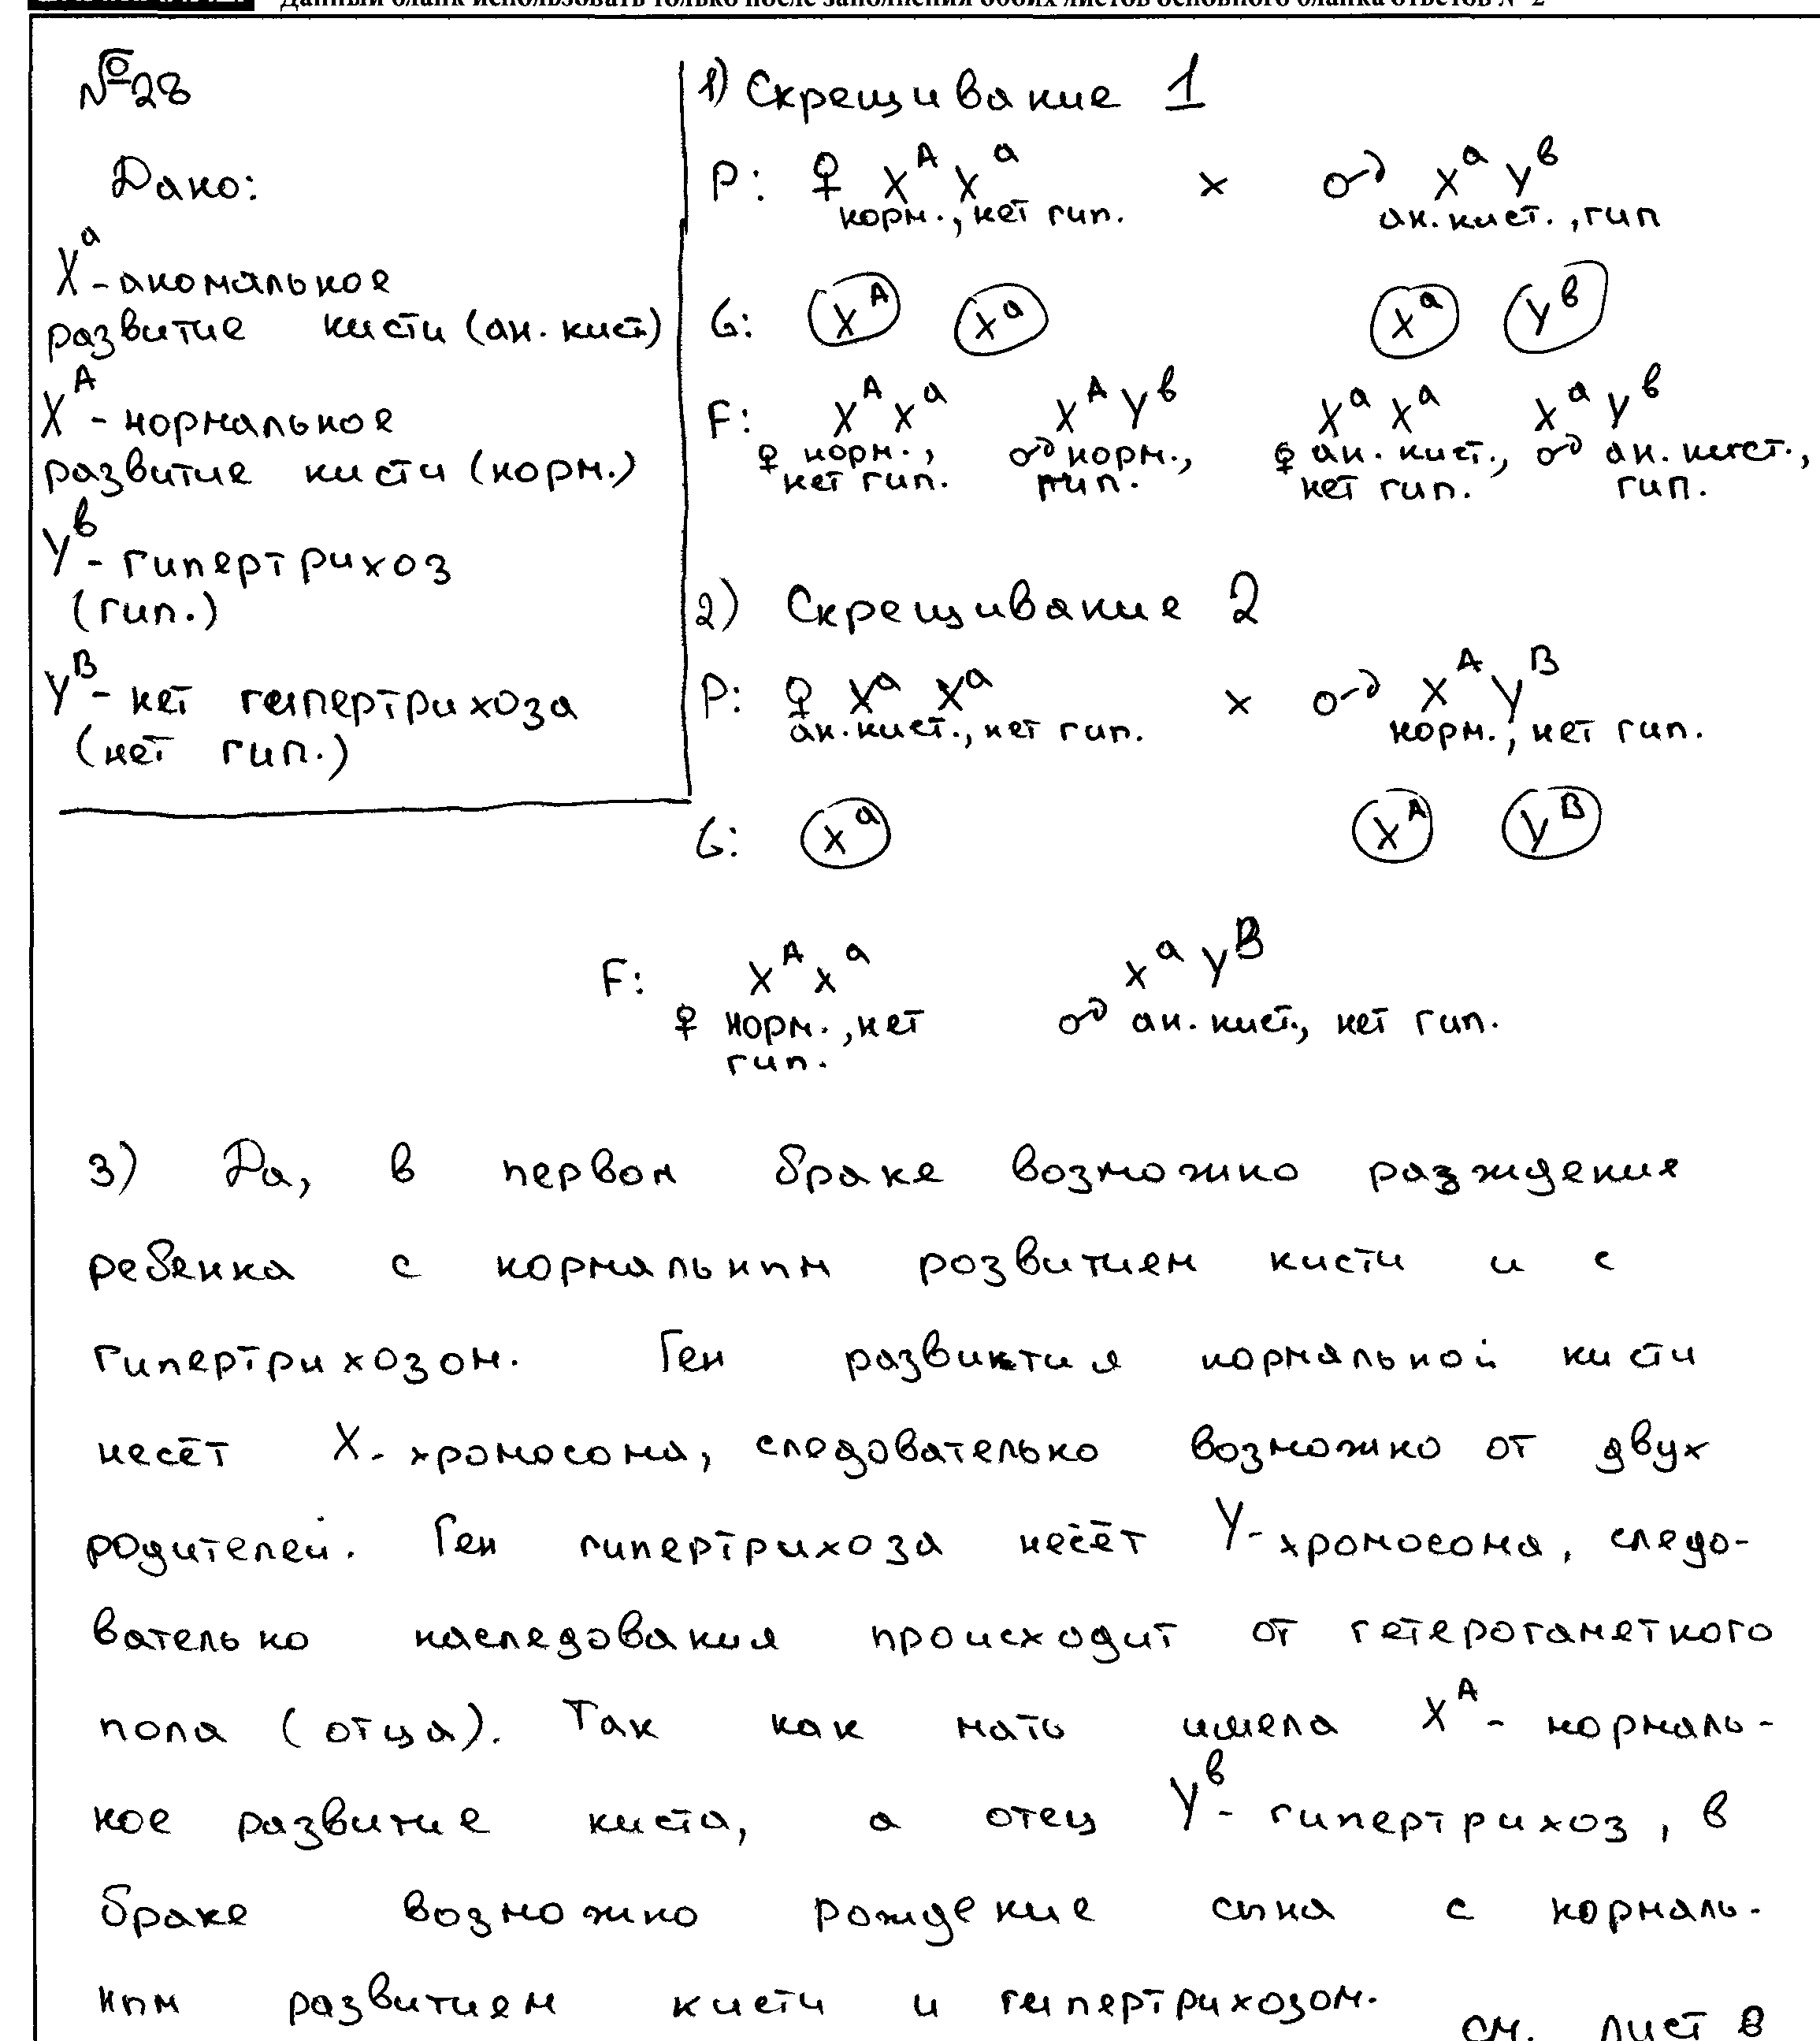 Данный бланк использовать только после заполнения обоих листов основного бланка ответов № 2
№28
Дано:
Xᵃ - аномальное
развитие кисти (ан. кист)
Xᴬ - нормальное
развитие кисти (норм.)
Yᵇ - гипертрихоз
(гип.)
Yᴮ - нет гипертрихоза
(нет гип.)
1) Скрещивание 1
P: ♀ Xᴬ Xᵃ x ♂ Xᵃ Yᵇ
норм., нет гип. ан. кист., гип
G: Xᴬ Xᵃ Xᵃ Yᵇ
F: Xᴬ Xᵃ Xᴬ Yᵇ Xᵃ Xᵃ Xᵃ Yᵇ
♀ норм., ♂ норм., ♀ ан. кист., ♂ ан. кист.,
нет гип. гип. нет гип. гип.
2) Скрещивание 2
P: ♀ Xᵃ Xᵃ x ♂ Xᴬ Yᴮ
ан. кист., нет гип. норм., нет гип.
G: Xᵃ Xᴬ Yᴮ
F: Xᴬ Xᵃ Xᵃ Yᴮ
♀ норм., нет ♂ ан. кист., нет гип.
гип.
3) Да, в первом браке возможно разждения
ребенка с нормальным розвитием кисти и с
гипертрихозом. Ген развиктия нормальной кисти
несёт X-хромосома, следовательно возможно от двух
родителей. Ген гипертрихоза несёт Y-хромосома, следо-
вательно наследования происходит от гетерогаметного
пола (отца). Так как мать имела Xᴬ - нормаль-
ное развитие киста, а отец Yᵇ - гипертрихоз, в
браке возможно рождение сына с нормаль-
ным развитием кисти и гипертрихозом.
см. лист в